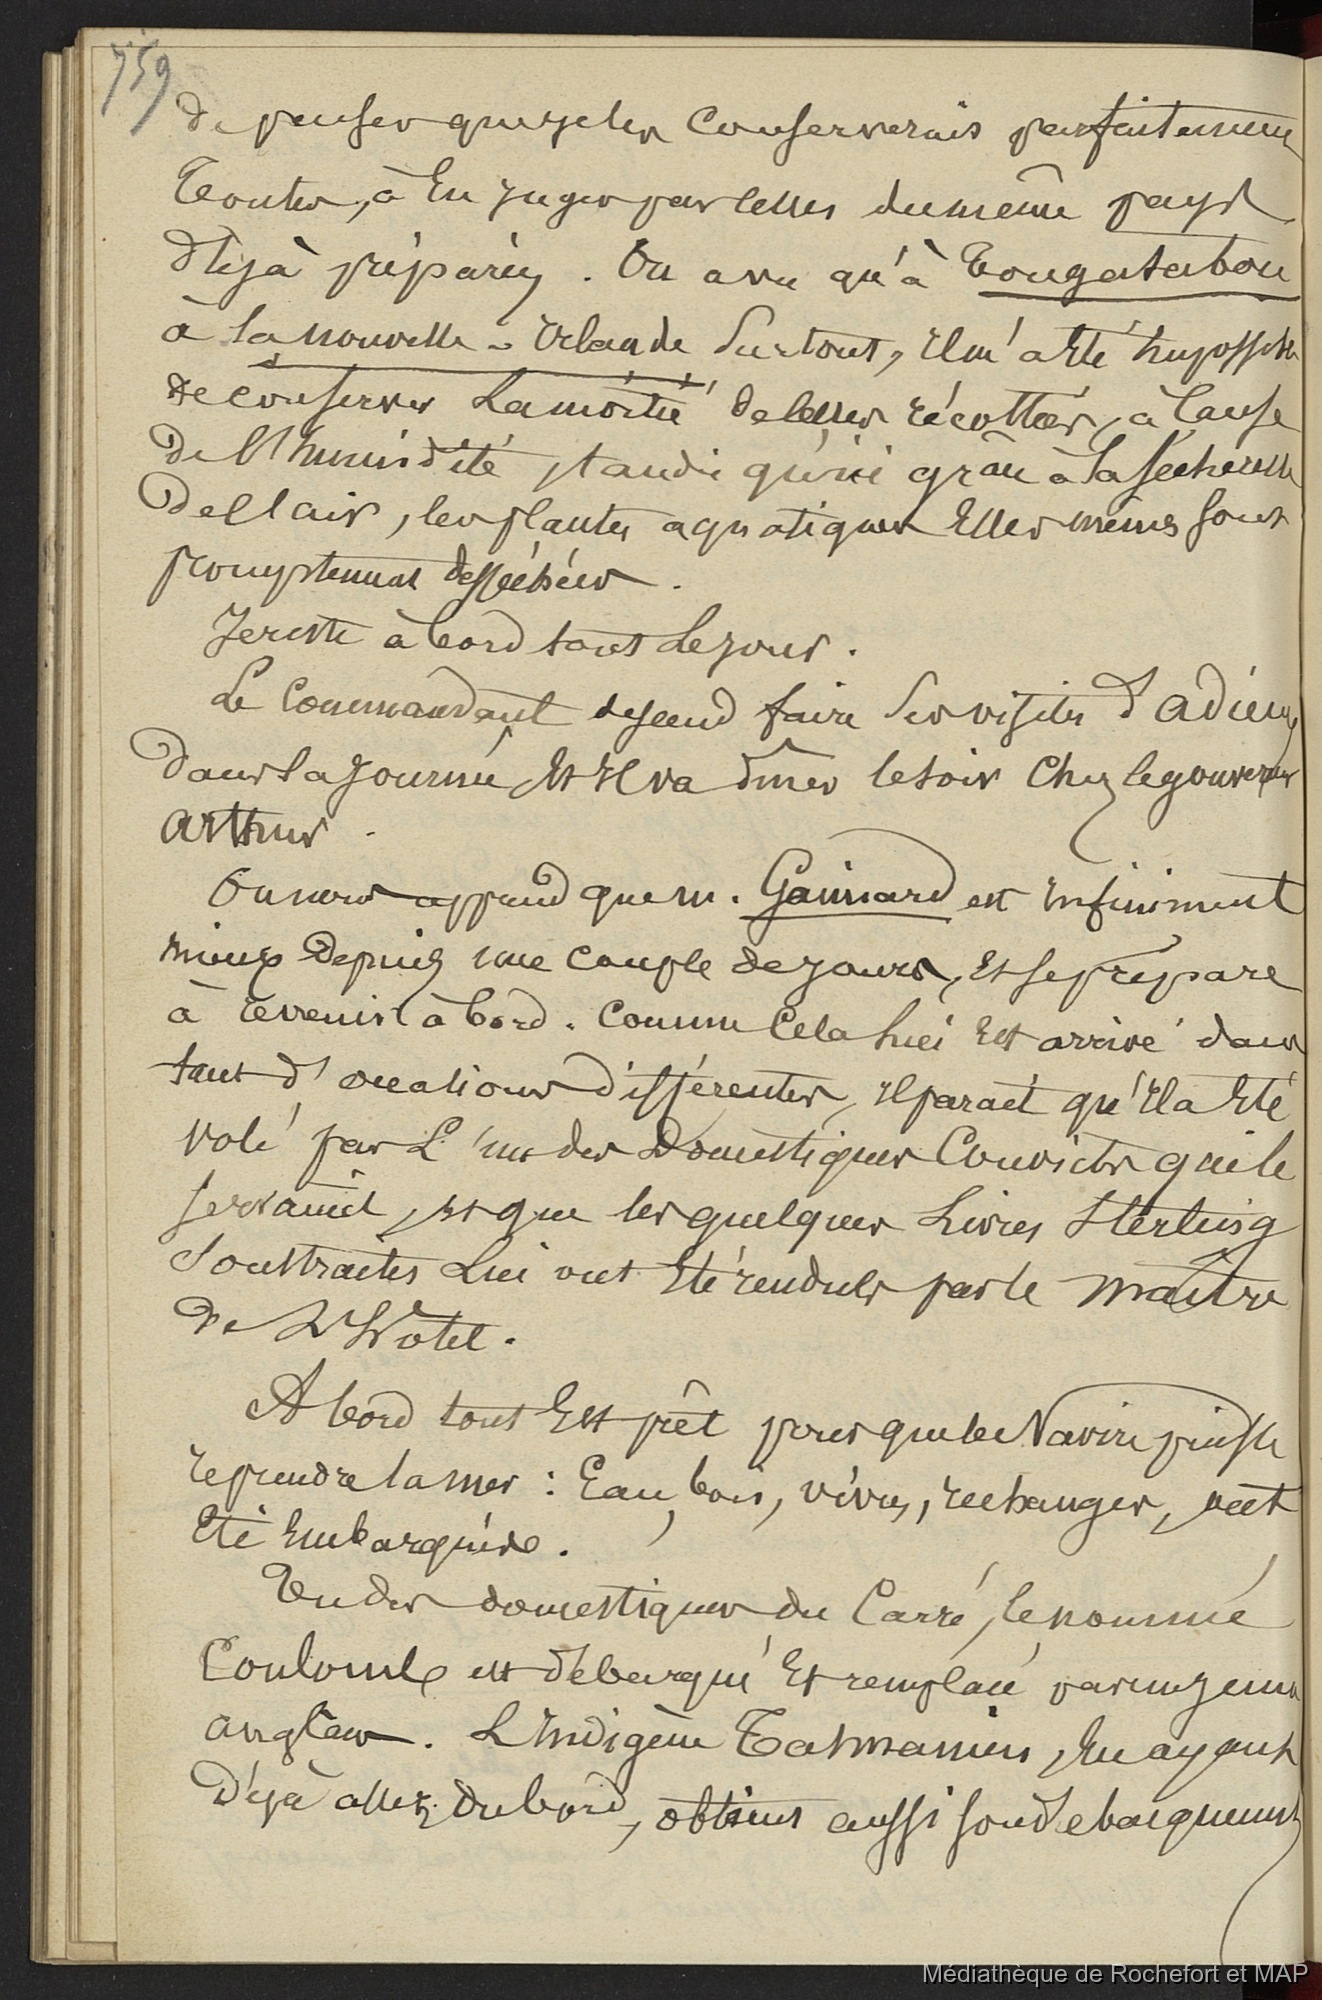 759
de penser que je les conserverais parfaitement
toutes, à en juger par celles du même pays
déjà préparées. On a vu qu'à Tongatabou
à la nouvelle-Irlande surtout, il m'a été impossible
de conserver la moitié de celles récoltées, à cause
de l'humidité, tandis qu'ici grâce à la sécheresse
de l'air, les plantes aquatiques elles mêmes sont
promptement desséchées.
Je reste à bord tout le jour.
Le Commandant descend faire ses visites d'adieux
dans la journée, et il va dîner le soir chez le gouverneur
Arthur.
On nous apprend que m. Gaimard est infiniment
mieux depuis une couple de jours, et se prépare
à revenir à bord. Comme cela lui est arrivé dans
tant d'occasions différentes, il paraît qu'il a été
volé par l'un des domestiques Convicts qui le
servaient, et que les quelques livres Sterling
soustraites lui ont été rendues par le maître
de l'hôtel.
A bord tout est prêt pour que le Navire puisse
reprendre la mer : Eau, bois, vivres, rechanges, ont
été embarqués.
Un des domestiques du Carré, le nommé
Coulomb est débarqué et remplacé par un jeune
anglais. L'Indigène Tasmanien, en ayant
déjà assez du bord, obtient aussi son débarquement
Médiathèque de Rochefort et MAP